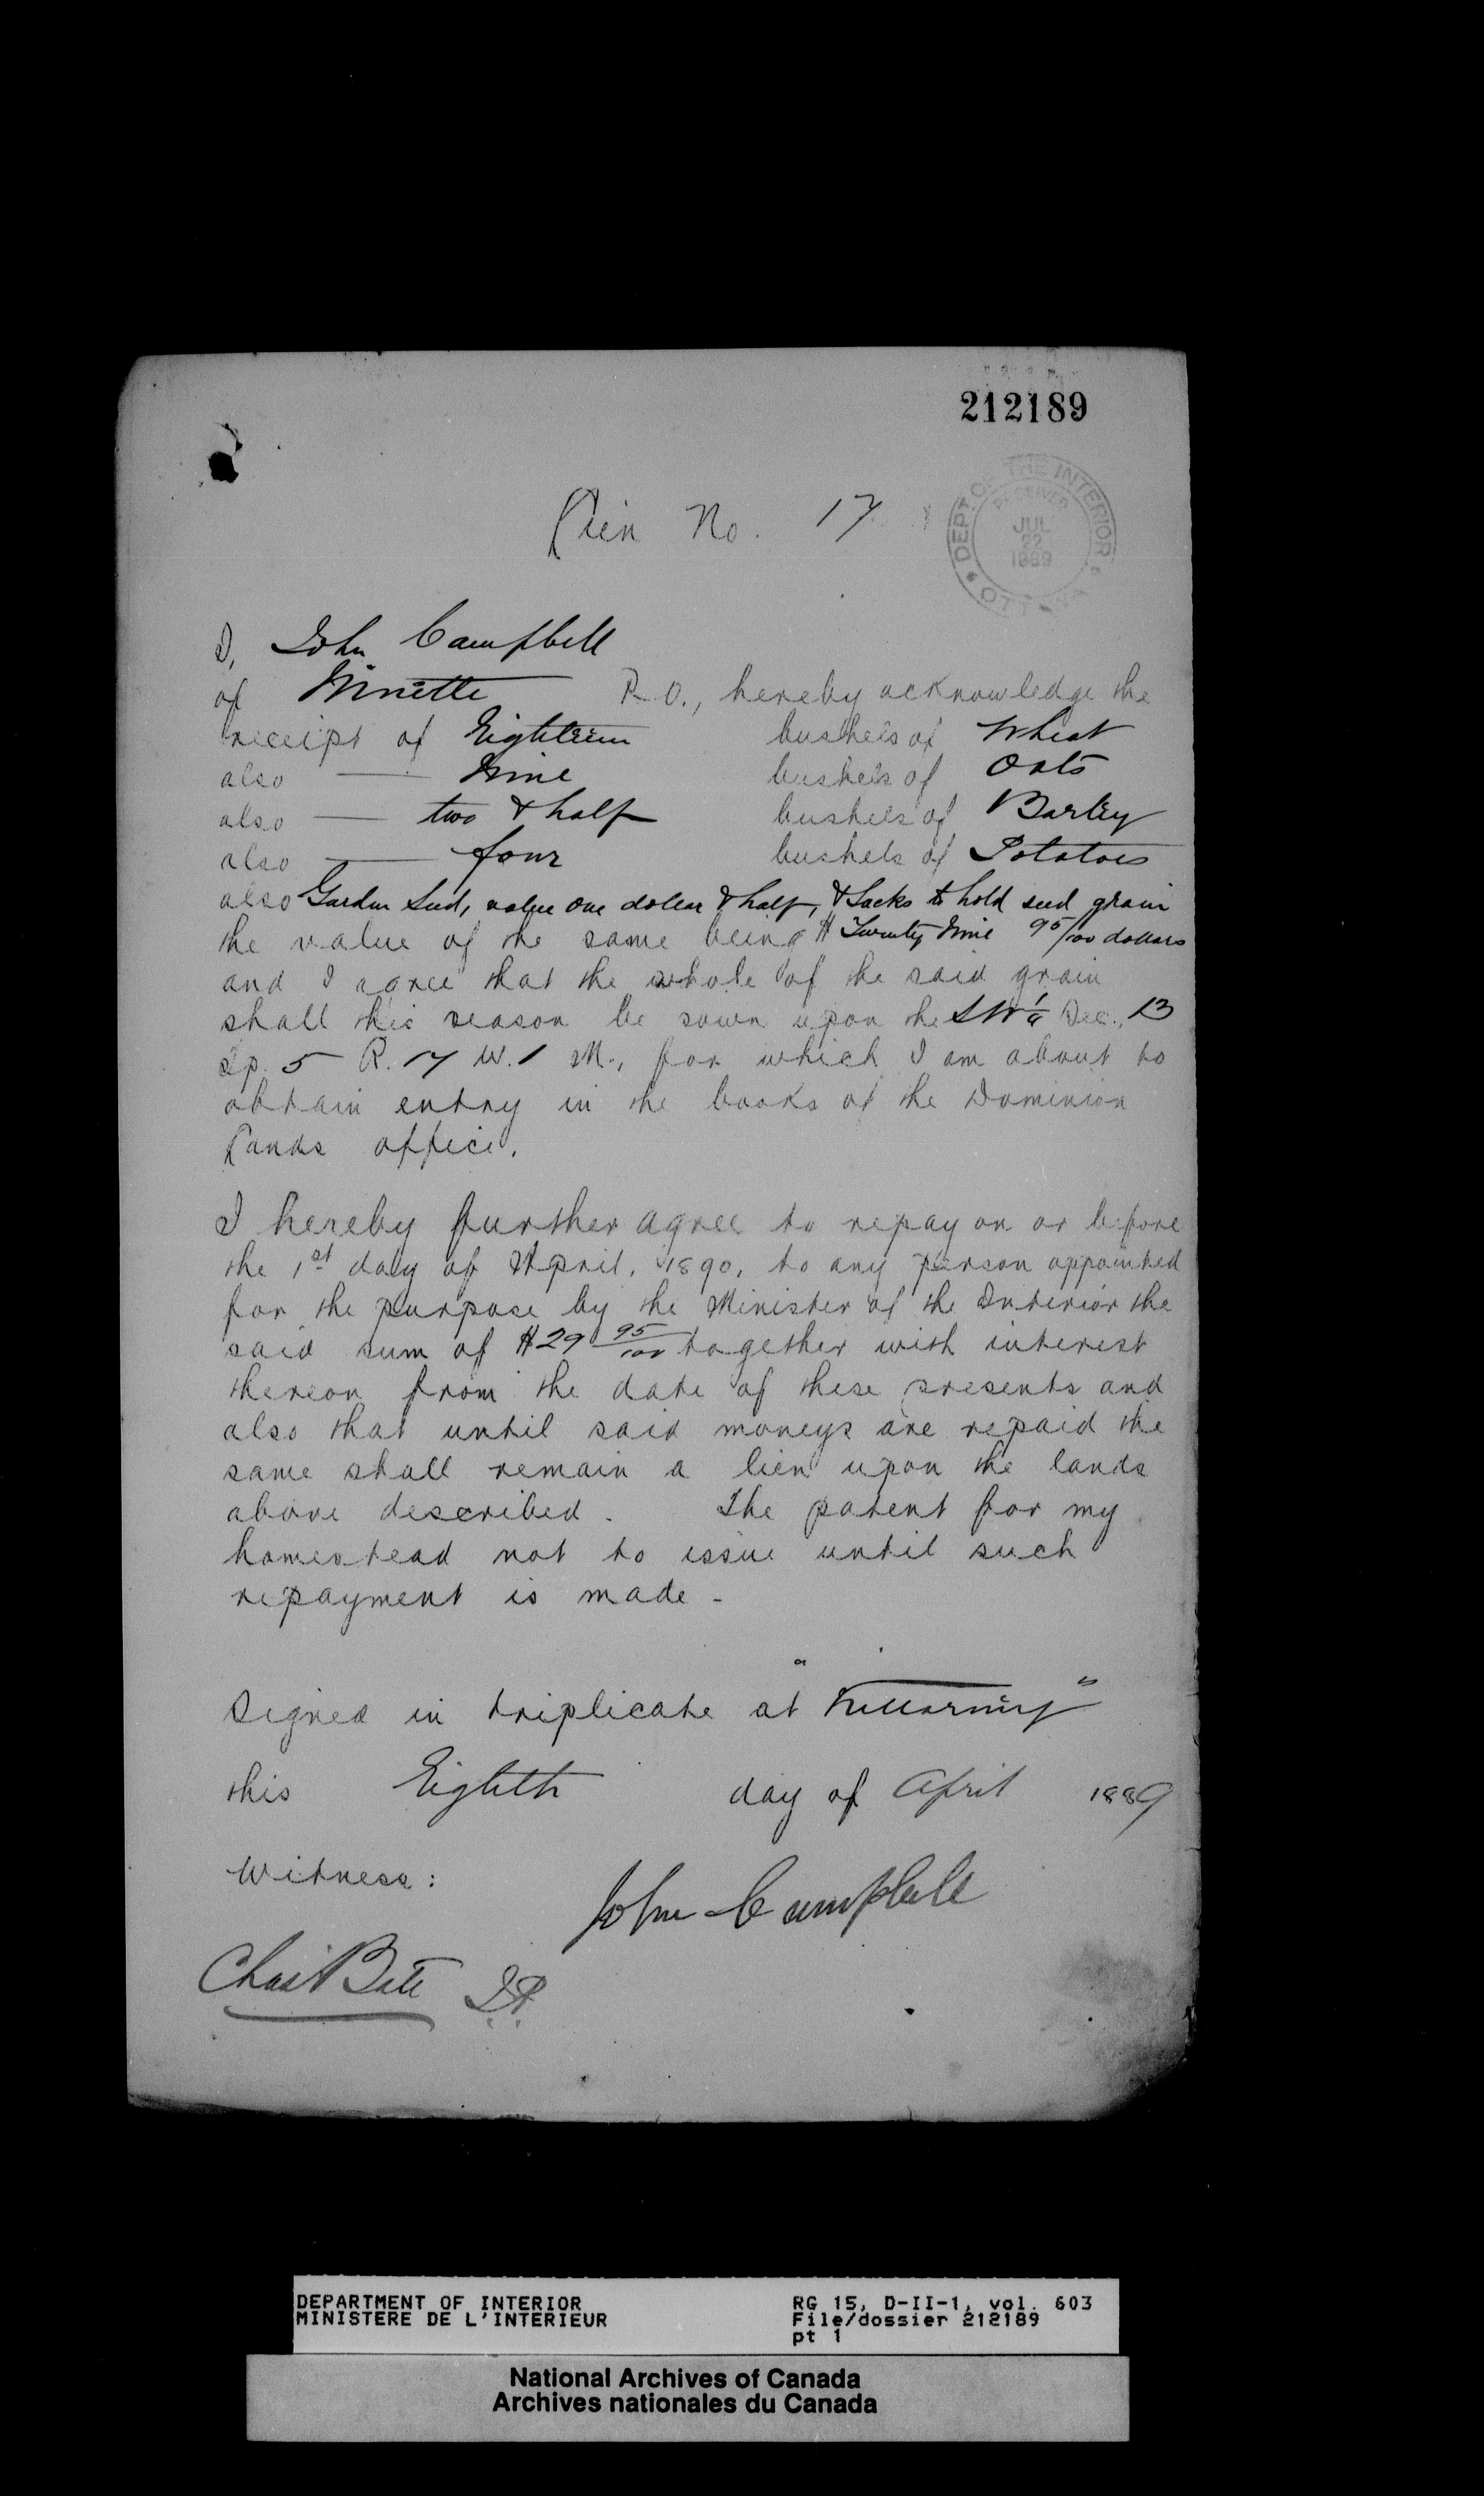 212189
Lien No. 17
DEPT. OF THE INTERIOR
RECEIVED
JUL
22
1889
OTTAWA
I, John Campbell
of Ninette P.O., hereby acknowledge the
receipt of Eighteen bushels of Wheat
also Nine bushels of Oats
also two & half bushels of Barley
also four bushels of Potatoes
also Garden Seed, value one dollar & half, & Sacks to hold seed grain
the value of the same being $ Twenty Nine 95/100 dollars
and I agree that the whole of the said grain
shall this season be sown upon the SW 1/4 Sec. 13
Tp. 5 R. 17 W. 1 M., for which I am about to
obtain entry in the books of the Dominion
Lands office.
I hereby further agree to repay on or before
the 1st day of April, 1890, to any person appointed
for the purpose by the Minister of the Interior the
said sum of $29 95/100 together with interest
thereon from the date of these presents and
also that until said moneys are repaid the
same shall remain a lien upon the lands
above described. The patent for my
homestead not to issue until such
repayment is made -
Signed in triplicate at "Killarney"
this Eighth day of April 1889
Witness:
John Campbell
Chas Bate
DEPARTMENT OF INTERIOR RG 15, D-II-1, vol. 603
MINISTERE DE L'INTERIEUR File/dossier 212189
pt 1
National Archives of Canada
Archives nationales du Canada